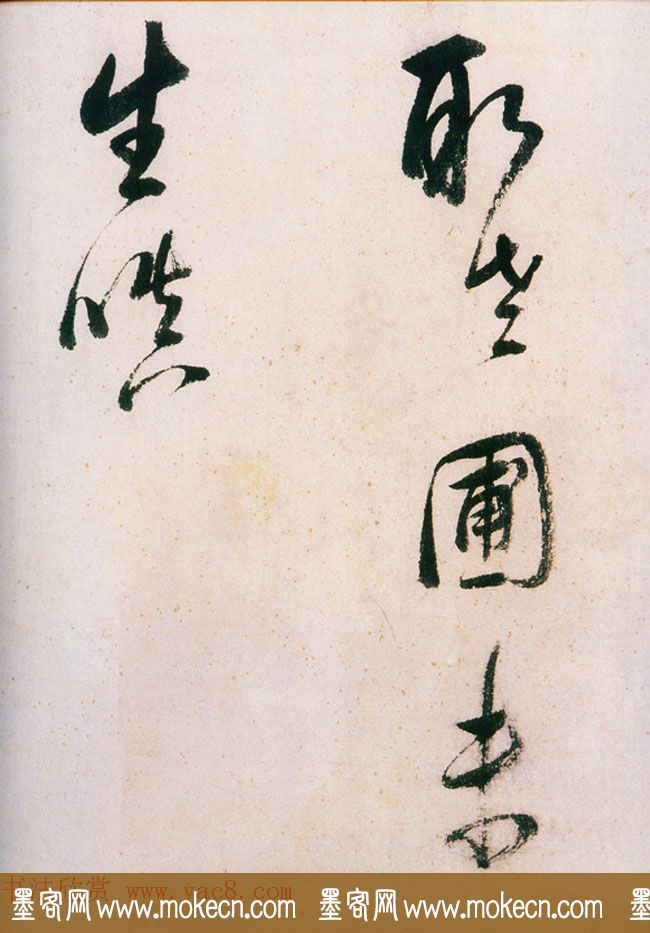 老圃書
生
书法欣赏 www.yac8.com
墨客网 www.mokecn.com 墨客网 www.mokecn.com